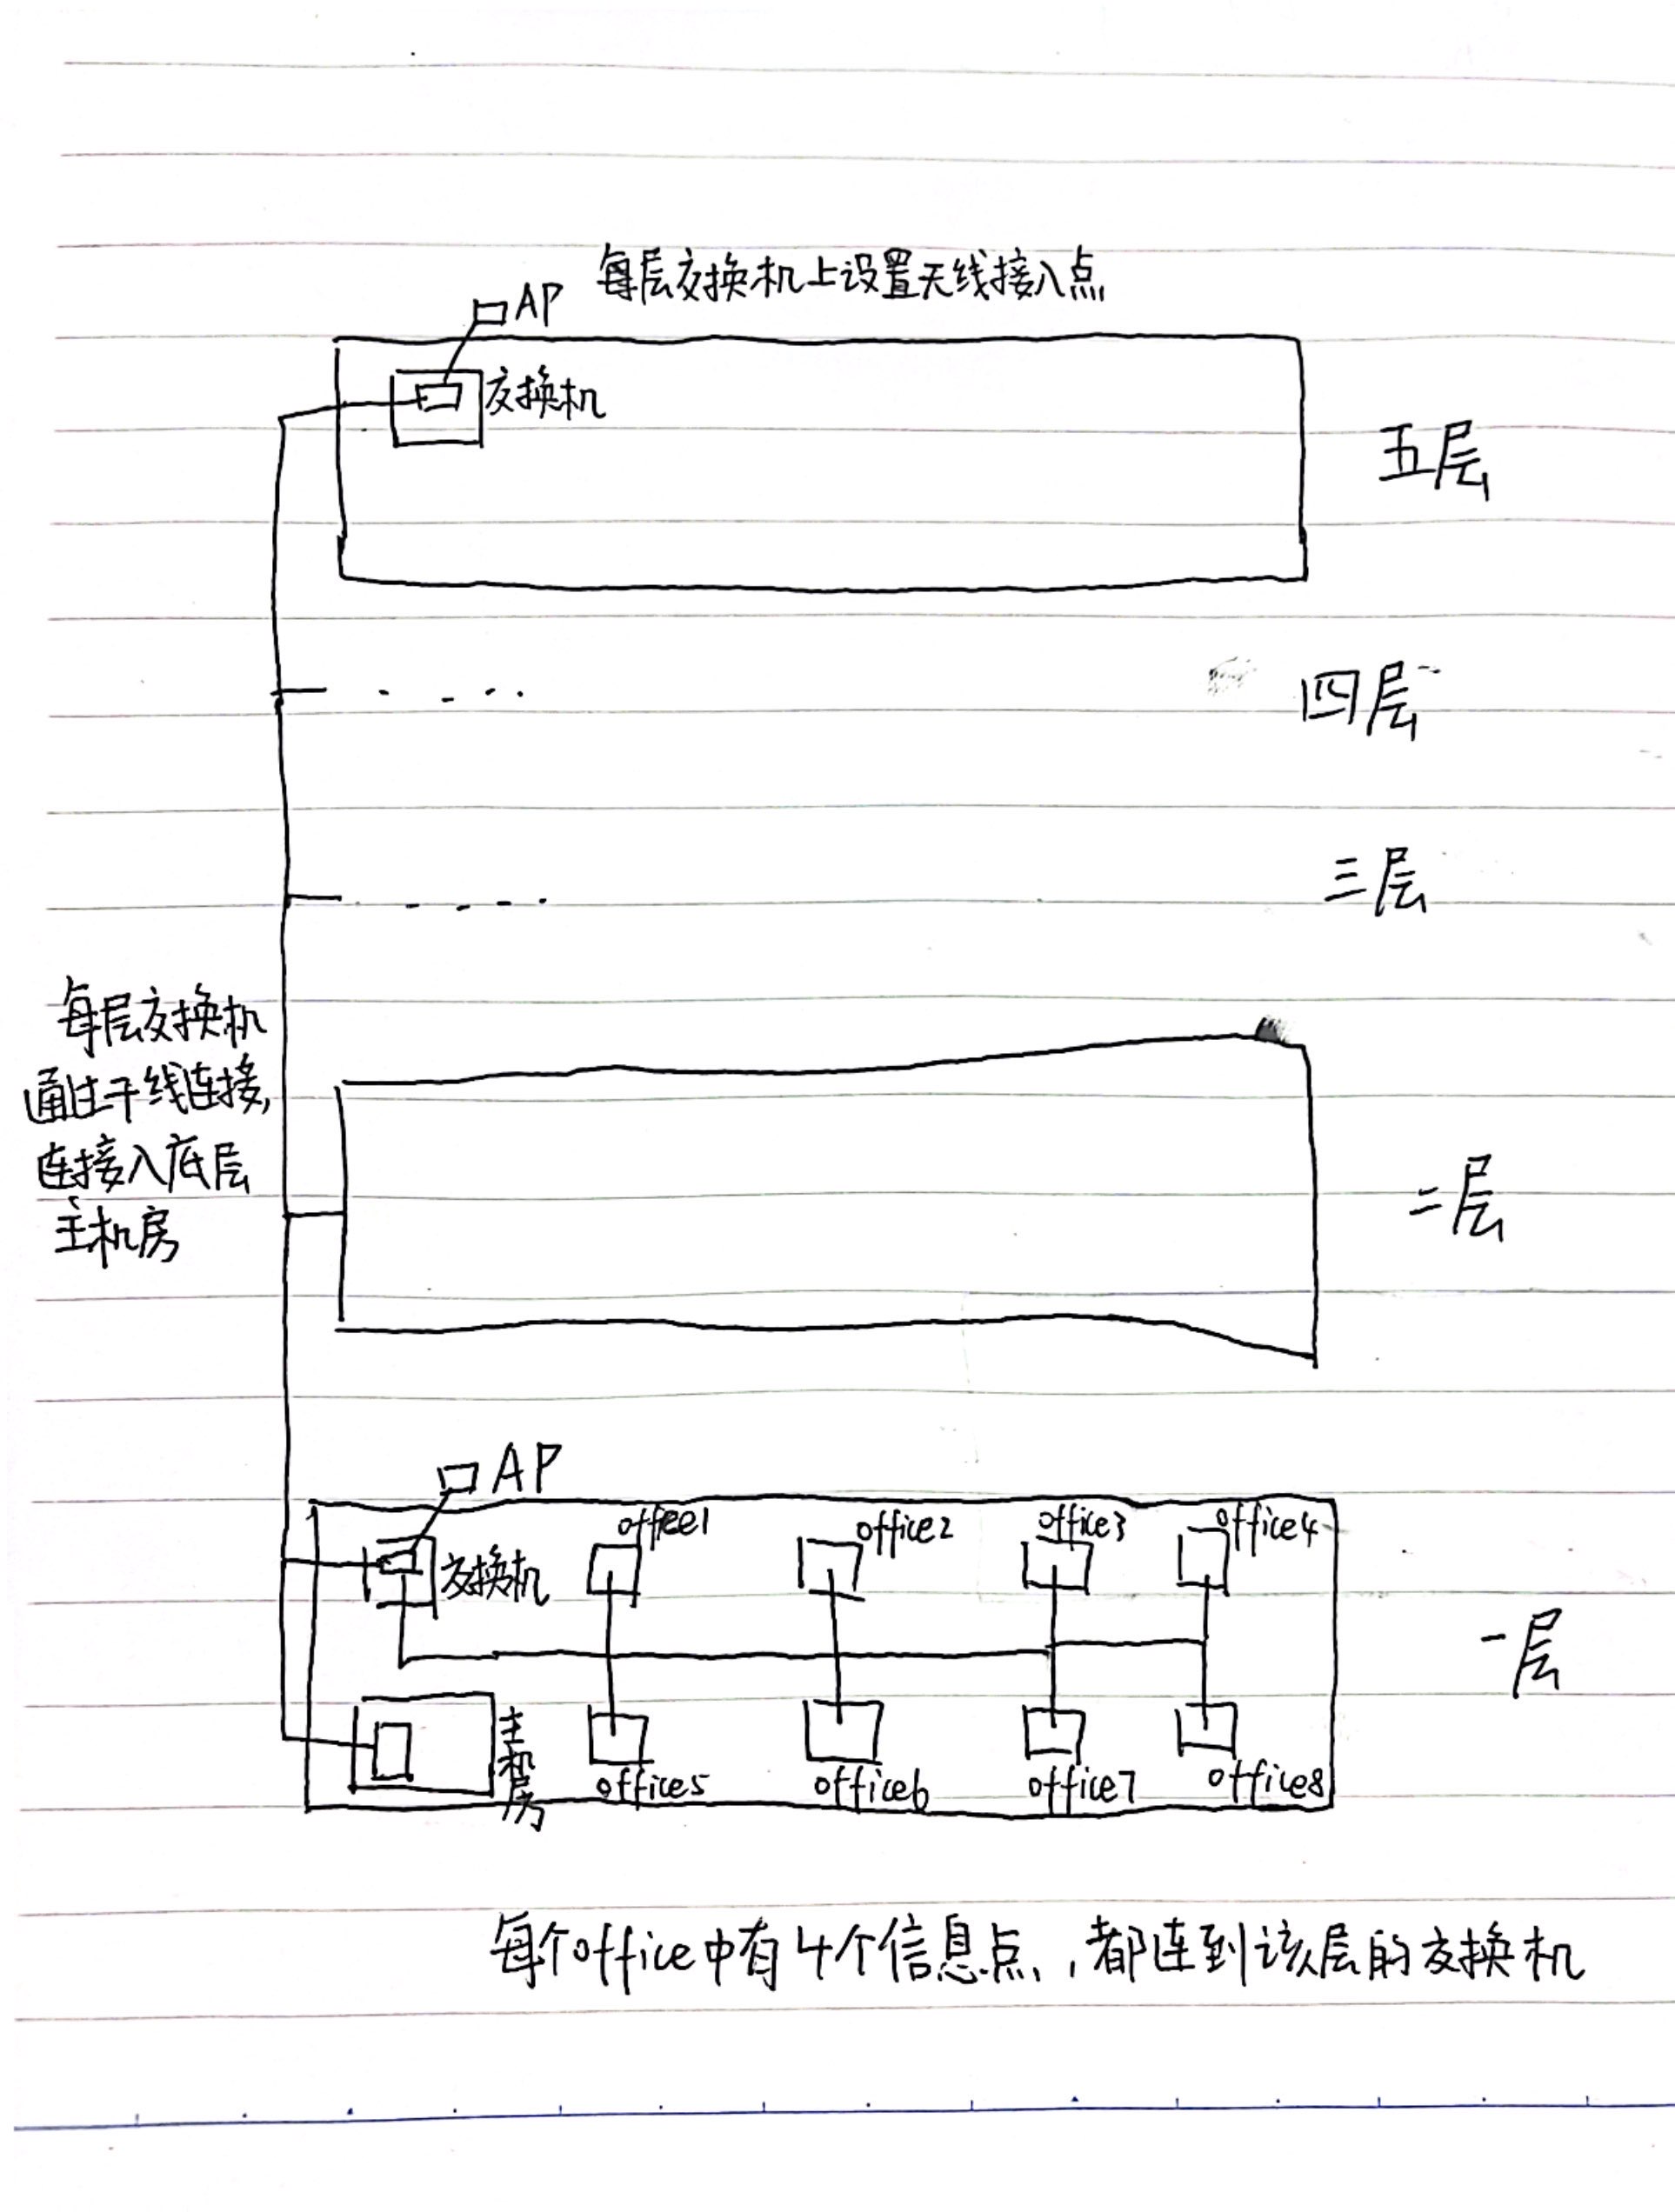 每层交换机上设置无线接入点
AP
交换机
五层
四层
三层
每层交换机
通过干线连接,
连接入底层
主机房
二层
AP
office1
office2
office3
office4
交换机
一层
主机房
office5
office6
office7
office8
每个office中有4个信息点,都连到该层的交换机